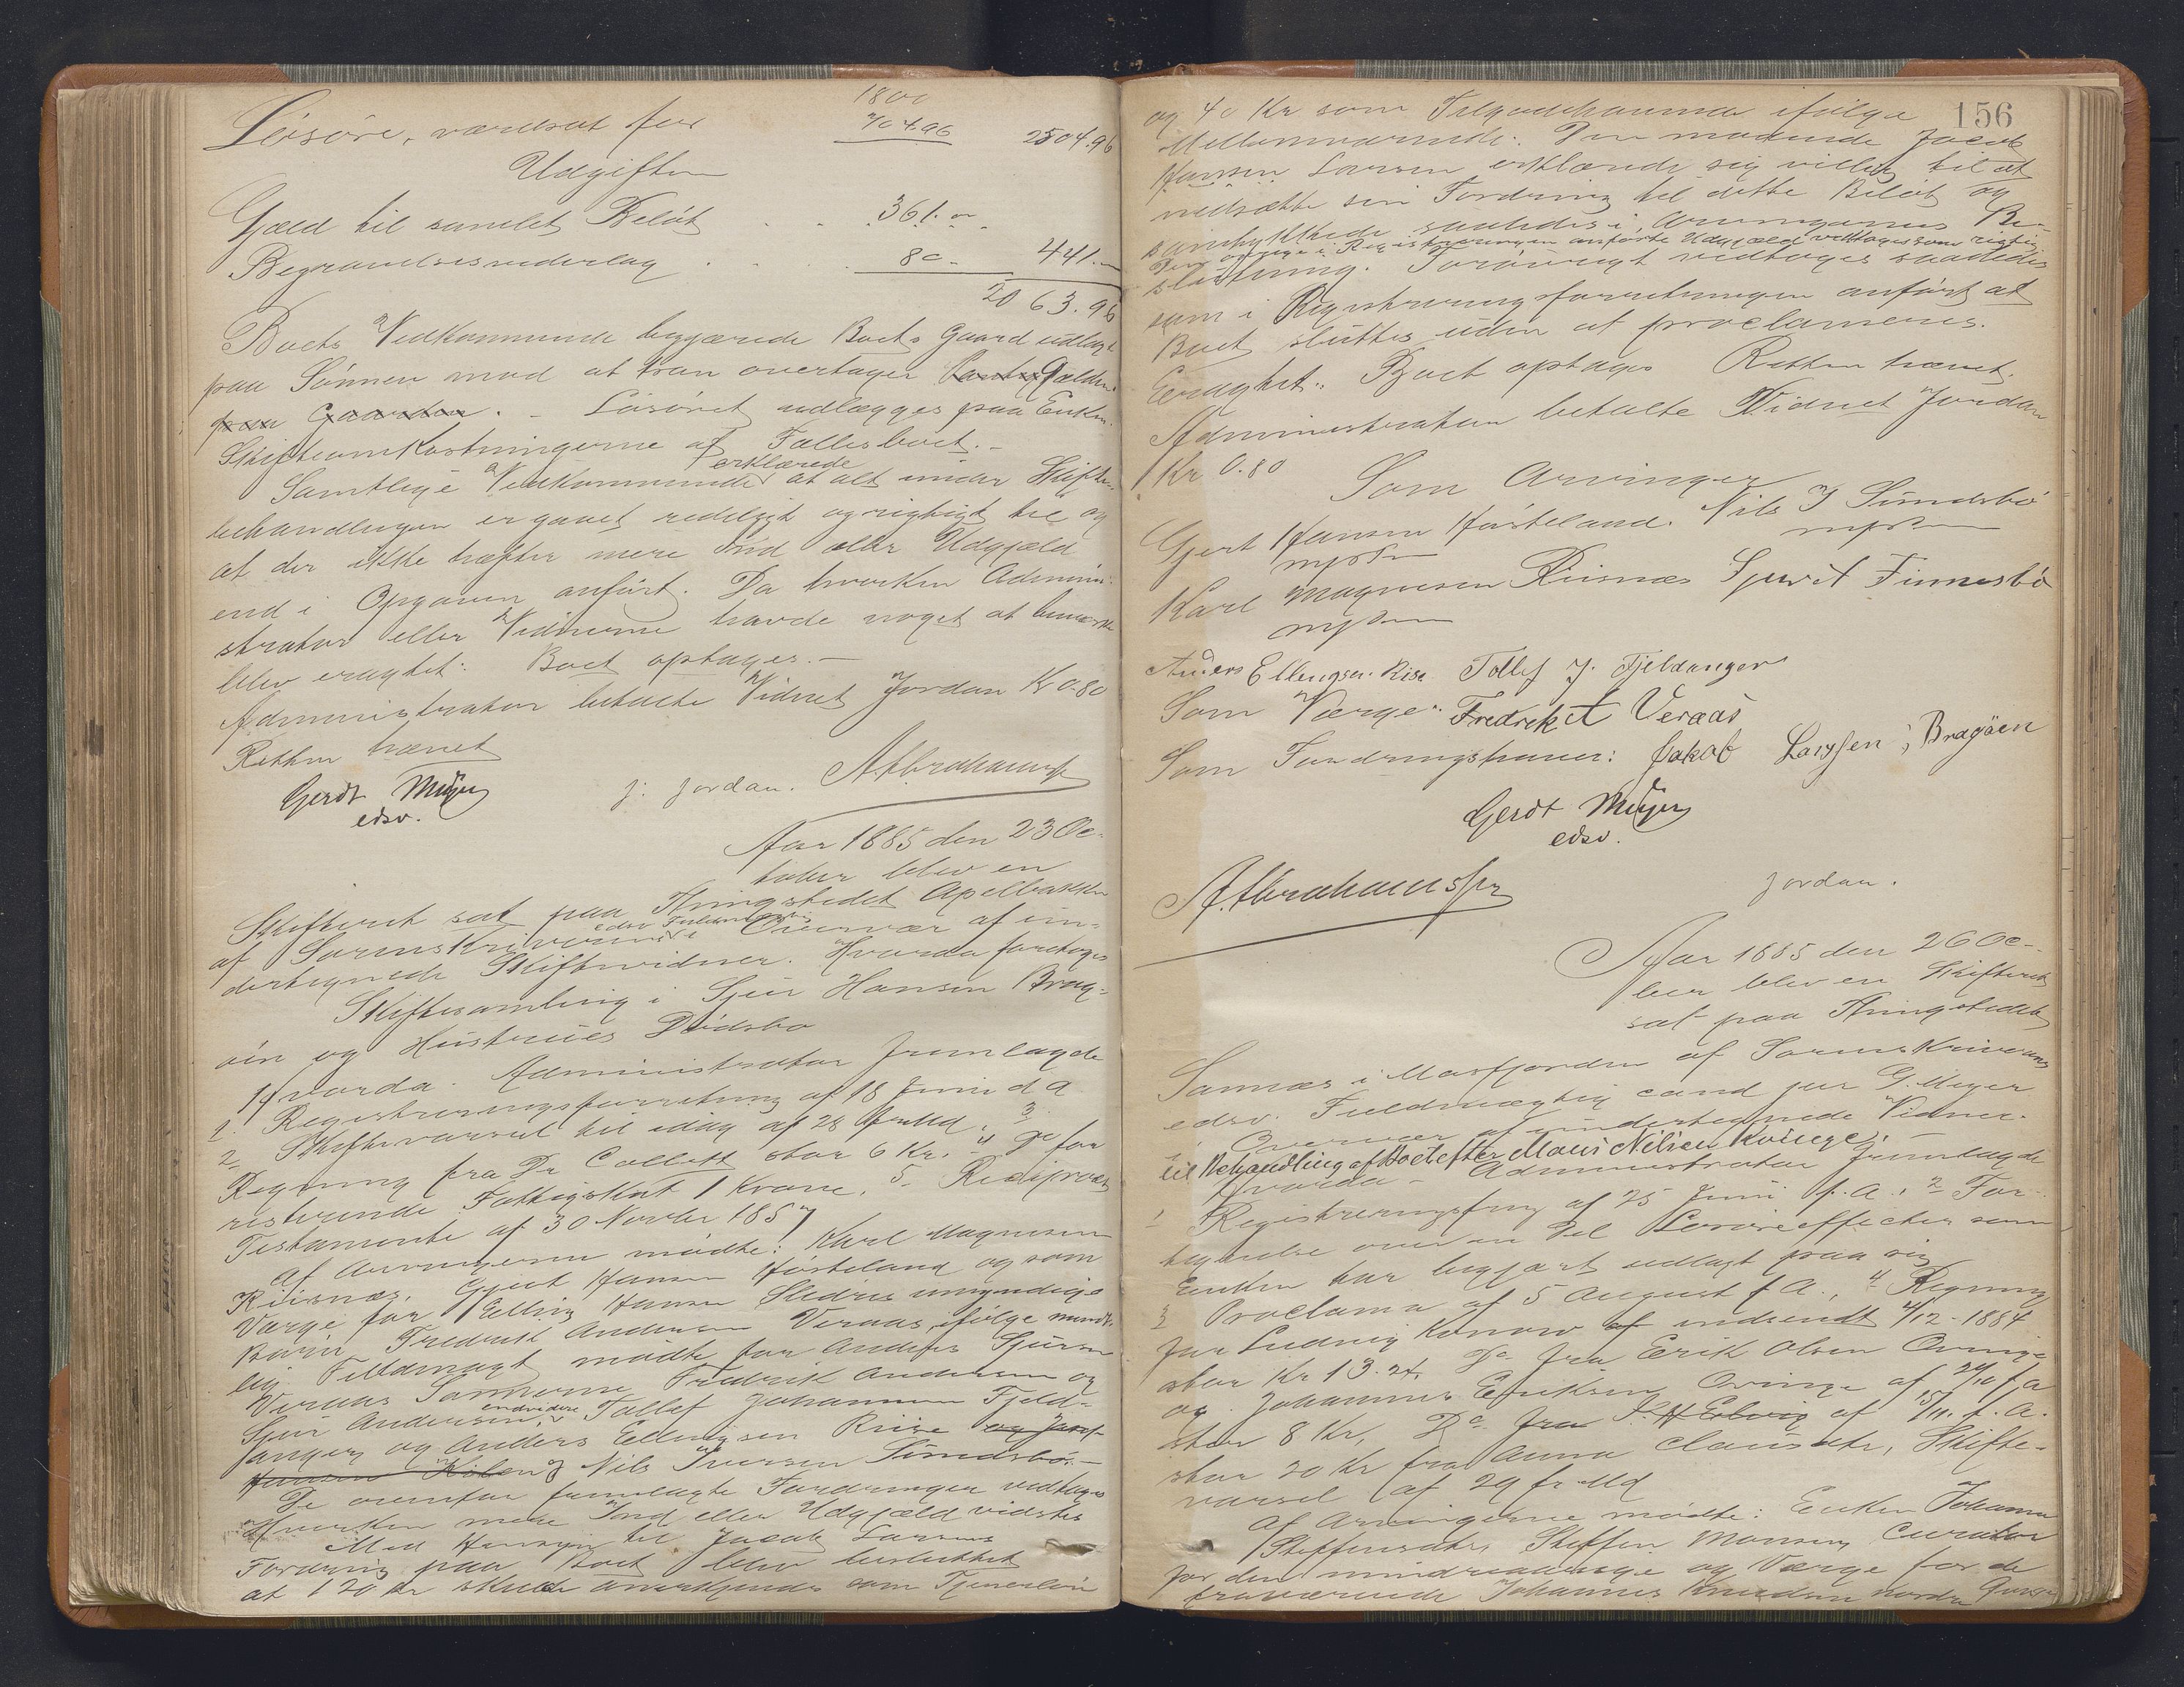 1800
Løsøre, værdsat for 704.96 2504.96
Udgifter
Gæld til samlet Beløb . . . 361. "
Begravelsesvederlag . . . . 80 - 441. "
2063.96
Boets Vedkommende begjærede Boets Gaard udlagt
paa Sønnen mod at han overtager Gælden
paa Gaarden. - Løsøret udlægges paa Enken.
Skifteomkostningerne af Fællesboet. -
erklærede
Samtlige Vedkommende at alt under Skifte-
behandlingen er gaaet redeligt og rigtigt til og
at der ikke hæfter mere Ind eller Udgjæld
end i Opgaven anført. Da hverken Admini-
strator eller Vidnerne havde noget at bemærke
blev eragtet: Boet optages. -
Administrator betalte Vidnet Jordan Kr 0.80
Retten hævet
Gerdt Meyer J. Jordan. A. Abrahamsen
edsv.
Aar 1885 den 23 Oc-
tober blev en
Skifteret sat paa Thingstedet Apelbakken
af Sorenskriverens edsv Fuldmægtig i Overvær af un-
dertegnede Skiftevidner. Hvorda foretoges
Skiftesamling i Sjur Hansen Brag-
øen og Hustrues Dødsbo
Hvorda. Administrator fremlagde
1. Registreringsforretning af 18 Juni d A
2. Skiftevarsel til idag af 28 f Md. 3
Regning fra Dr Collett stor 6 Kr. 4 Do for
resterende Fattigskat 1 Krone, 5. Reciprokt
Testamente af 30 Novber 1857
Af Arvingerne mødte: Karl Magnesen
Riisnæs, Gjert Hansen Høsteland og som
Værge for Elling Hansen Sledres umyndige
Børn Fredrik Andersen Veraas, ifølge mundt-
lig Fuldmagt mødte for Anders Sjursen
Veraas Sønnerne Fredrik Andersen og
Sjur Andersen, endvidere Tollef Johannesen Fjeld-
janger og Anders Ellingsen Riise og
Hansen og Nils Iversen Sundsbø. -
De ovenfor fremlagte Fordringer vedtages
Hverken mere Ind eller Udgjæld vidstes
Med Hensyn til Jacob Larsens
Fordring paa Boet blev besluttet
at 120 Kr skulde anerkjendes som Tjenerløn
156
og 40 Kr som Tilgodehavende ifølge
Mellemværende. Den mødende Jacob
Hansen Larsen erklærede sig villig til at
nedsætte sin Fordring til dette Beløb og
samtykkede saaledes i Arvingernes Be-
Den øvrige i Registreringen anførte Udgjæld vedtoges som rigtig.
slutning. Forøvrigt vedtoges saaledes
som i Registreringsforretningen anført at
Boet sluttes uden at proclameres.
Eragtet: Boet optages Retten hævet.
Administrator betalte Vidnet Jordan
Kr 0.80
Som Arvinger
Gjert Hansen Høsteland. Nils I Sundsbø
mpSn mpSn
Karl Magnesen Riisnæs Sjurd Finnesbø
mpSn
Anders Ellingsen Rise Tollef J. Fjeldanger
Som Værge: Fredrek A Veraas
Som Fordringshaver: Jakob Larssen, Bragøen
Gerdt Meyer
edsv.
A. Abrahamsen Jordan.
Aar 1885 den 26 Oc-
ber blev en Skifteret
sat paa Thingstedet
Sannæs i Masfjorden af Sorenskriverens
edsv. Fuldmægtig cand jur G. Meyer
i Overvær af undertegnede Vidner.
til Behandling af Boet efter Mons Nilsen Kvinge.
Hvorda - Administrator fremlagde
1 Registreringsfng af 25 Juni f. A., 2 For-
tegnelse over en Del Løsøreeffecter som
Enken har begjært udlagt paa sig
3 Proclama af 5 August f A., 4 Regning
fra Ludvig Konow indsendt 4/12 - 1884
stor Kr 13.24, Do fra Erik Olsen Qvinge
og Johannes Eriksen Qvinge af 24/10 f a
stor 8 Kr, Do af 15/11. f. A.
stor 20 Kr fra Anna Clausdtr, Skifte-
varsel af 29 f. Md
Af Arvingerne mødte: Enken Johanna
Steffensdtr, Steffen Monsen, Curator
for den mindreaarige og Værge for de
fraværende Johannes Knudsen nordre